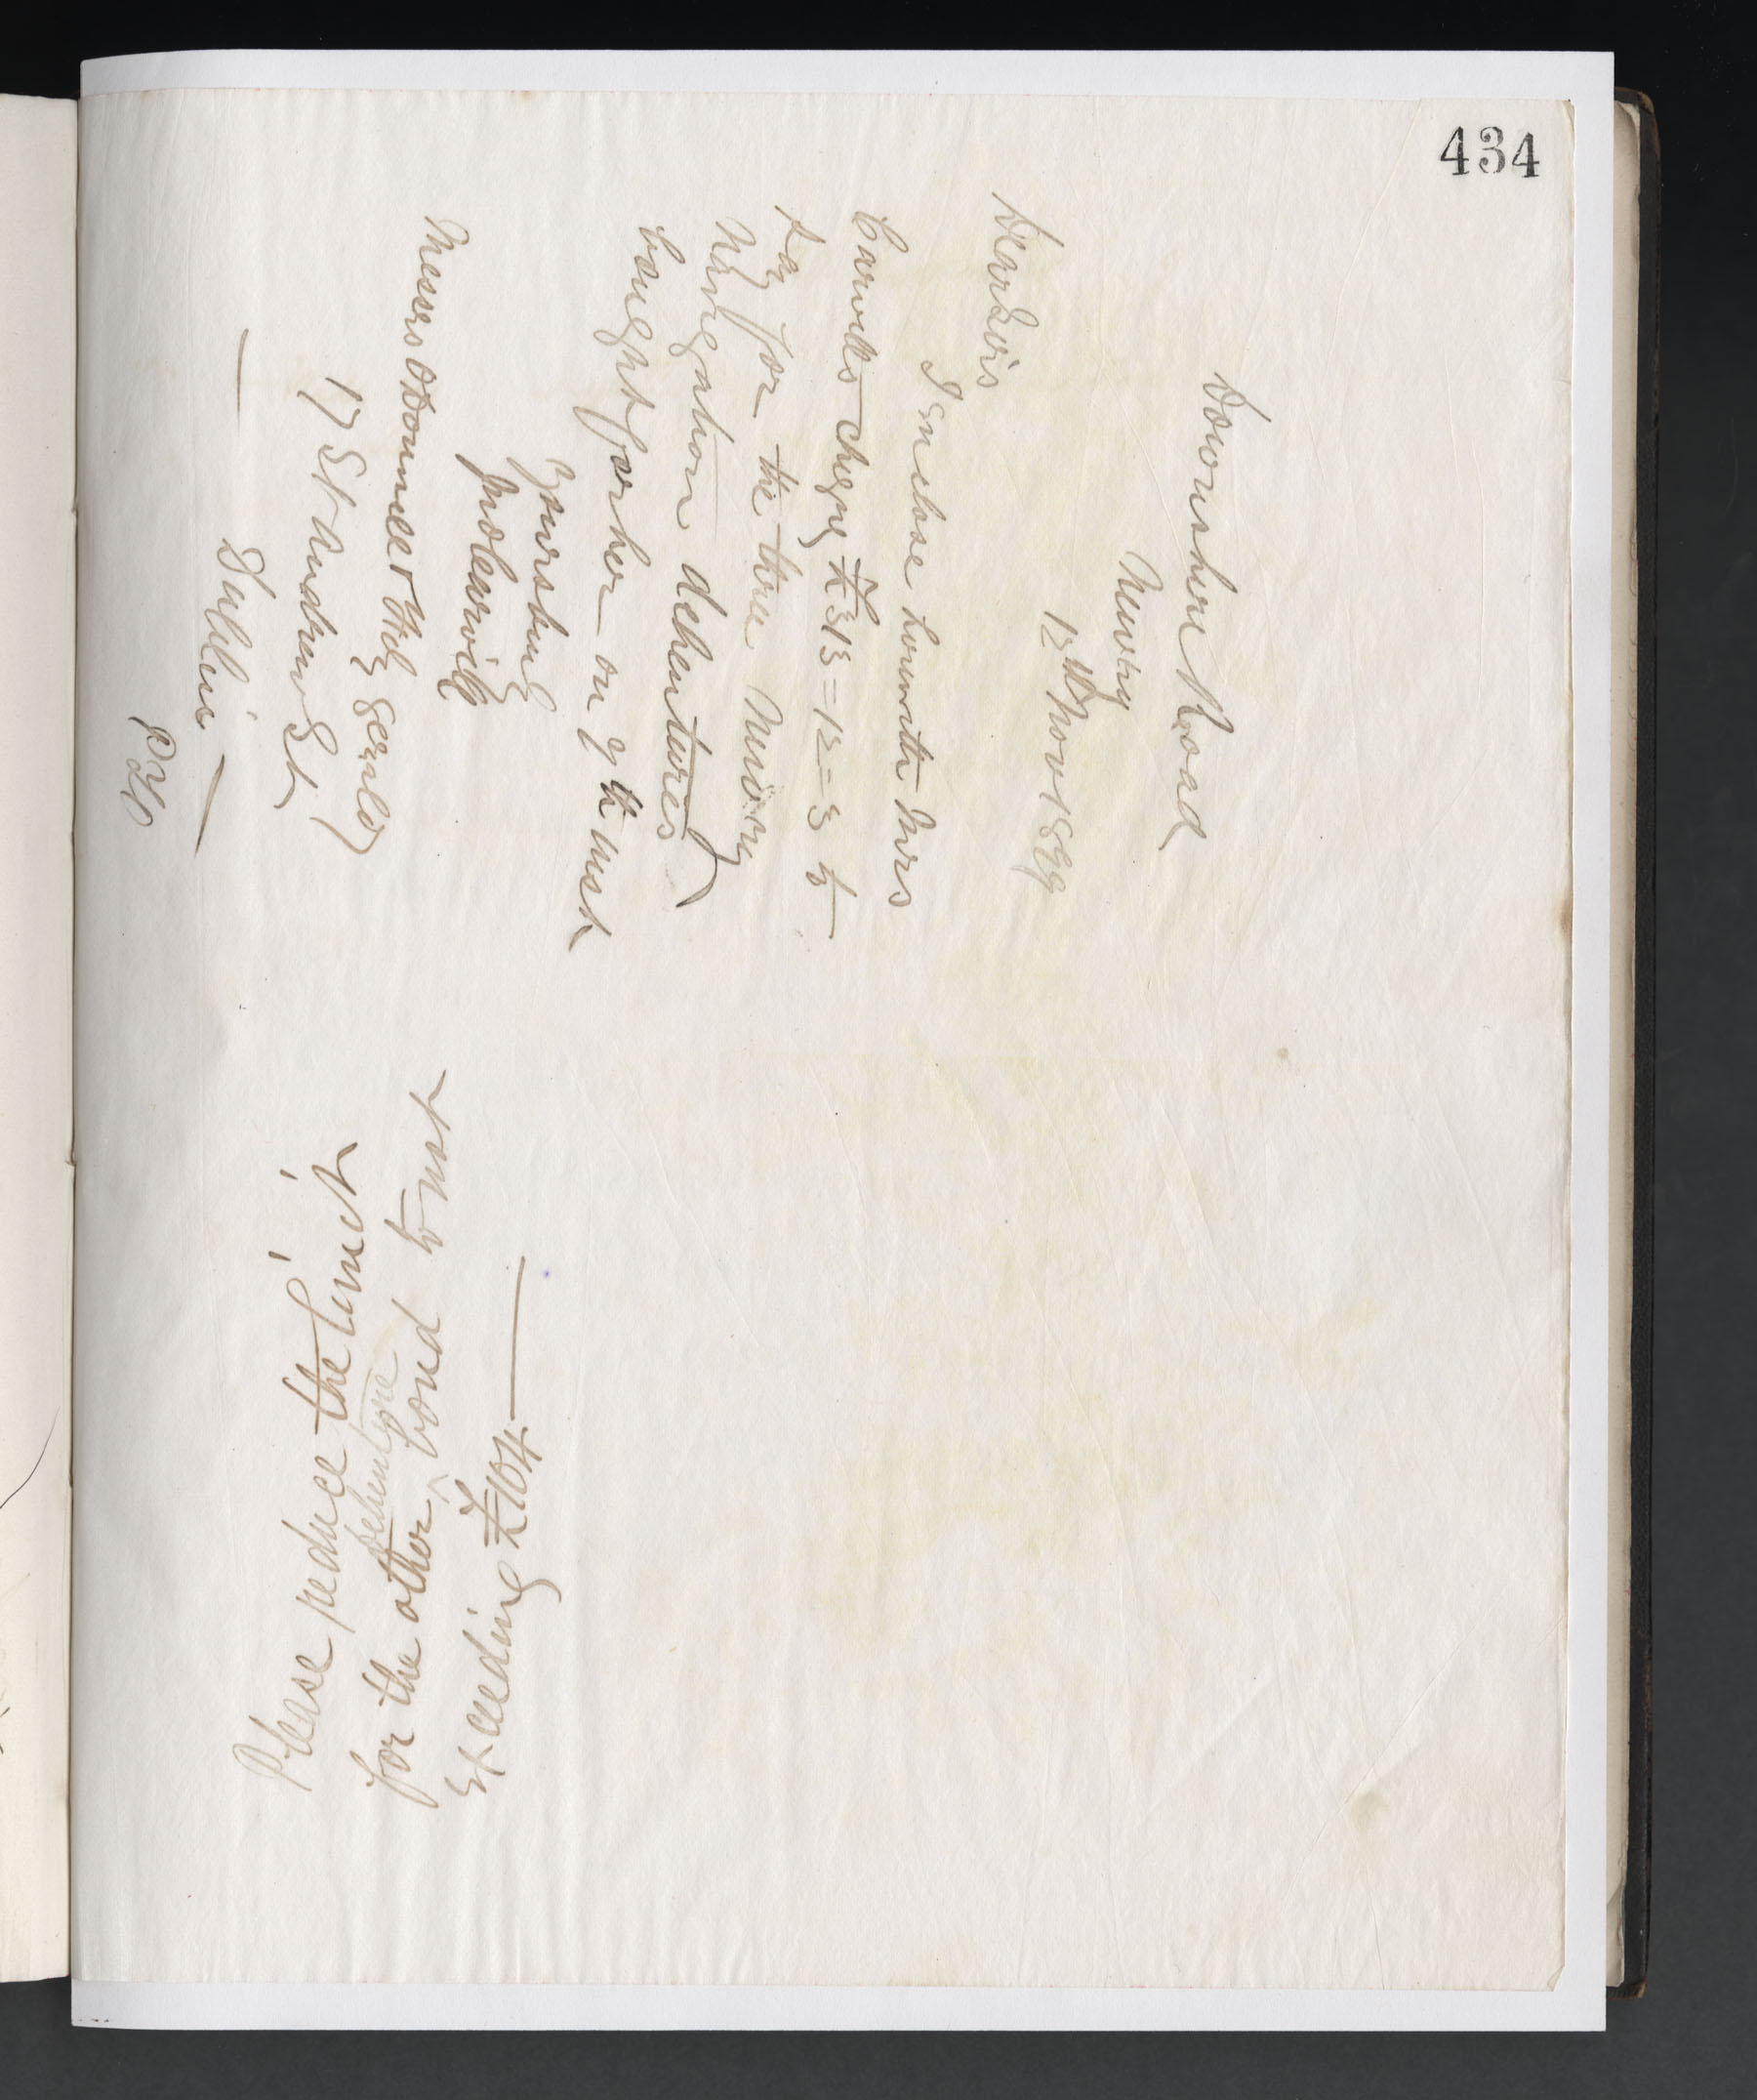 434
Downshire Road
Newry
13th Nov 1899
Dear Sirs
I enclose herewith Mrs
Carvills cheque £313=13=3 to
pay for the three Newry
Navigation debentures
bought for her on 7th inst
Yours truly
Messrs
17 St Andrew St
Dublin
P.T.O
Please reduce the limit
for the other debenture bond to not
exceeding £104.